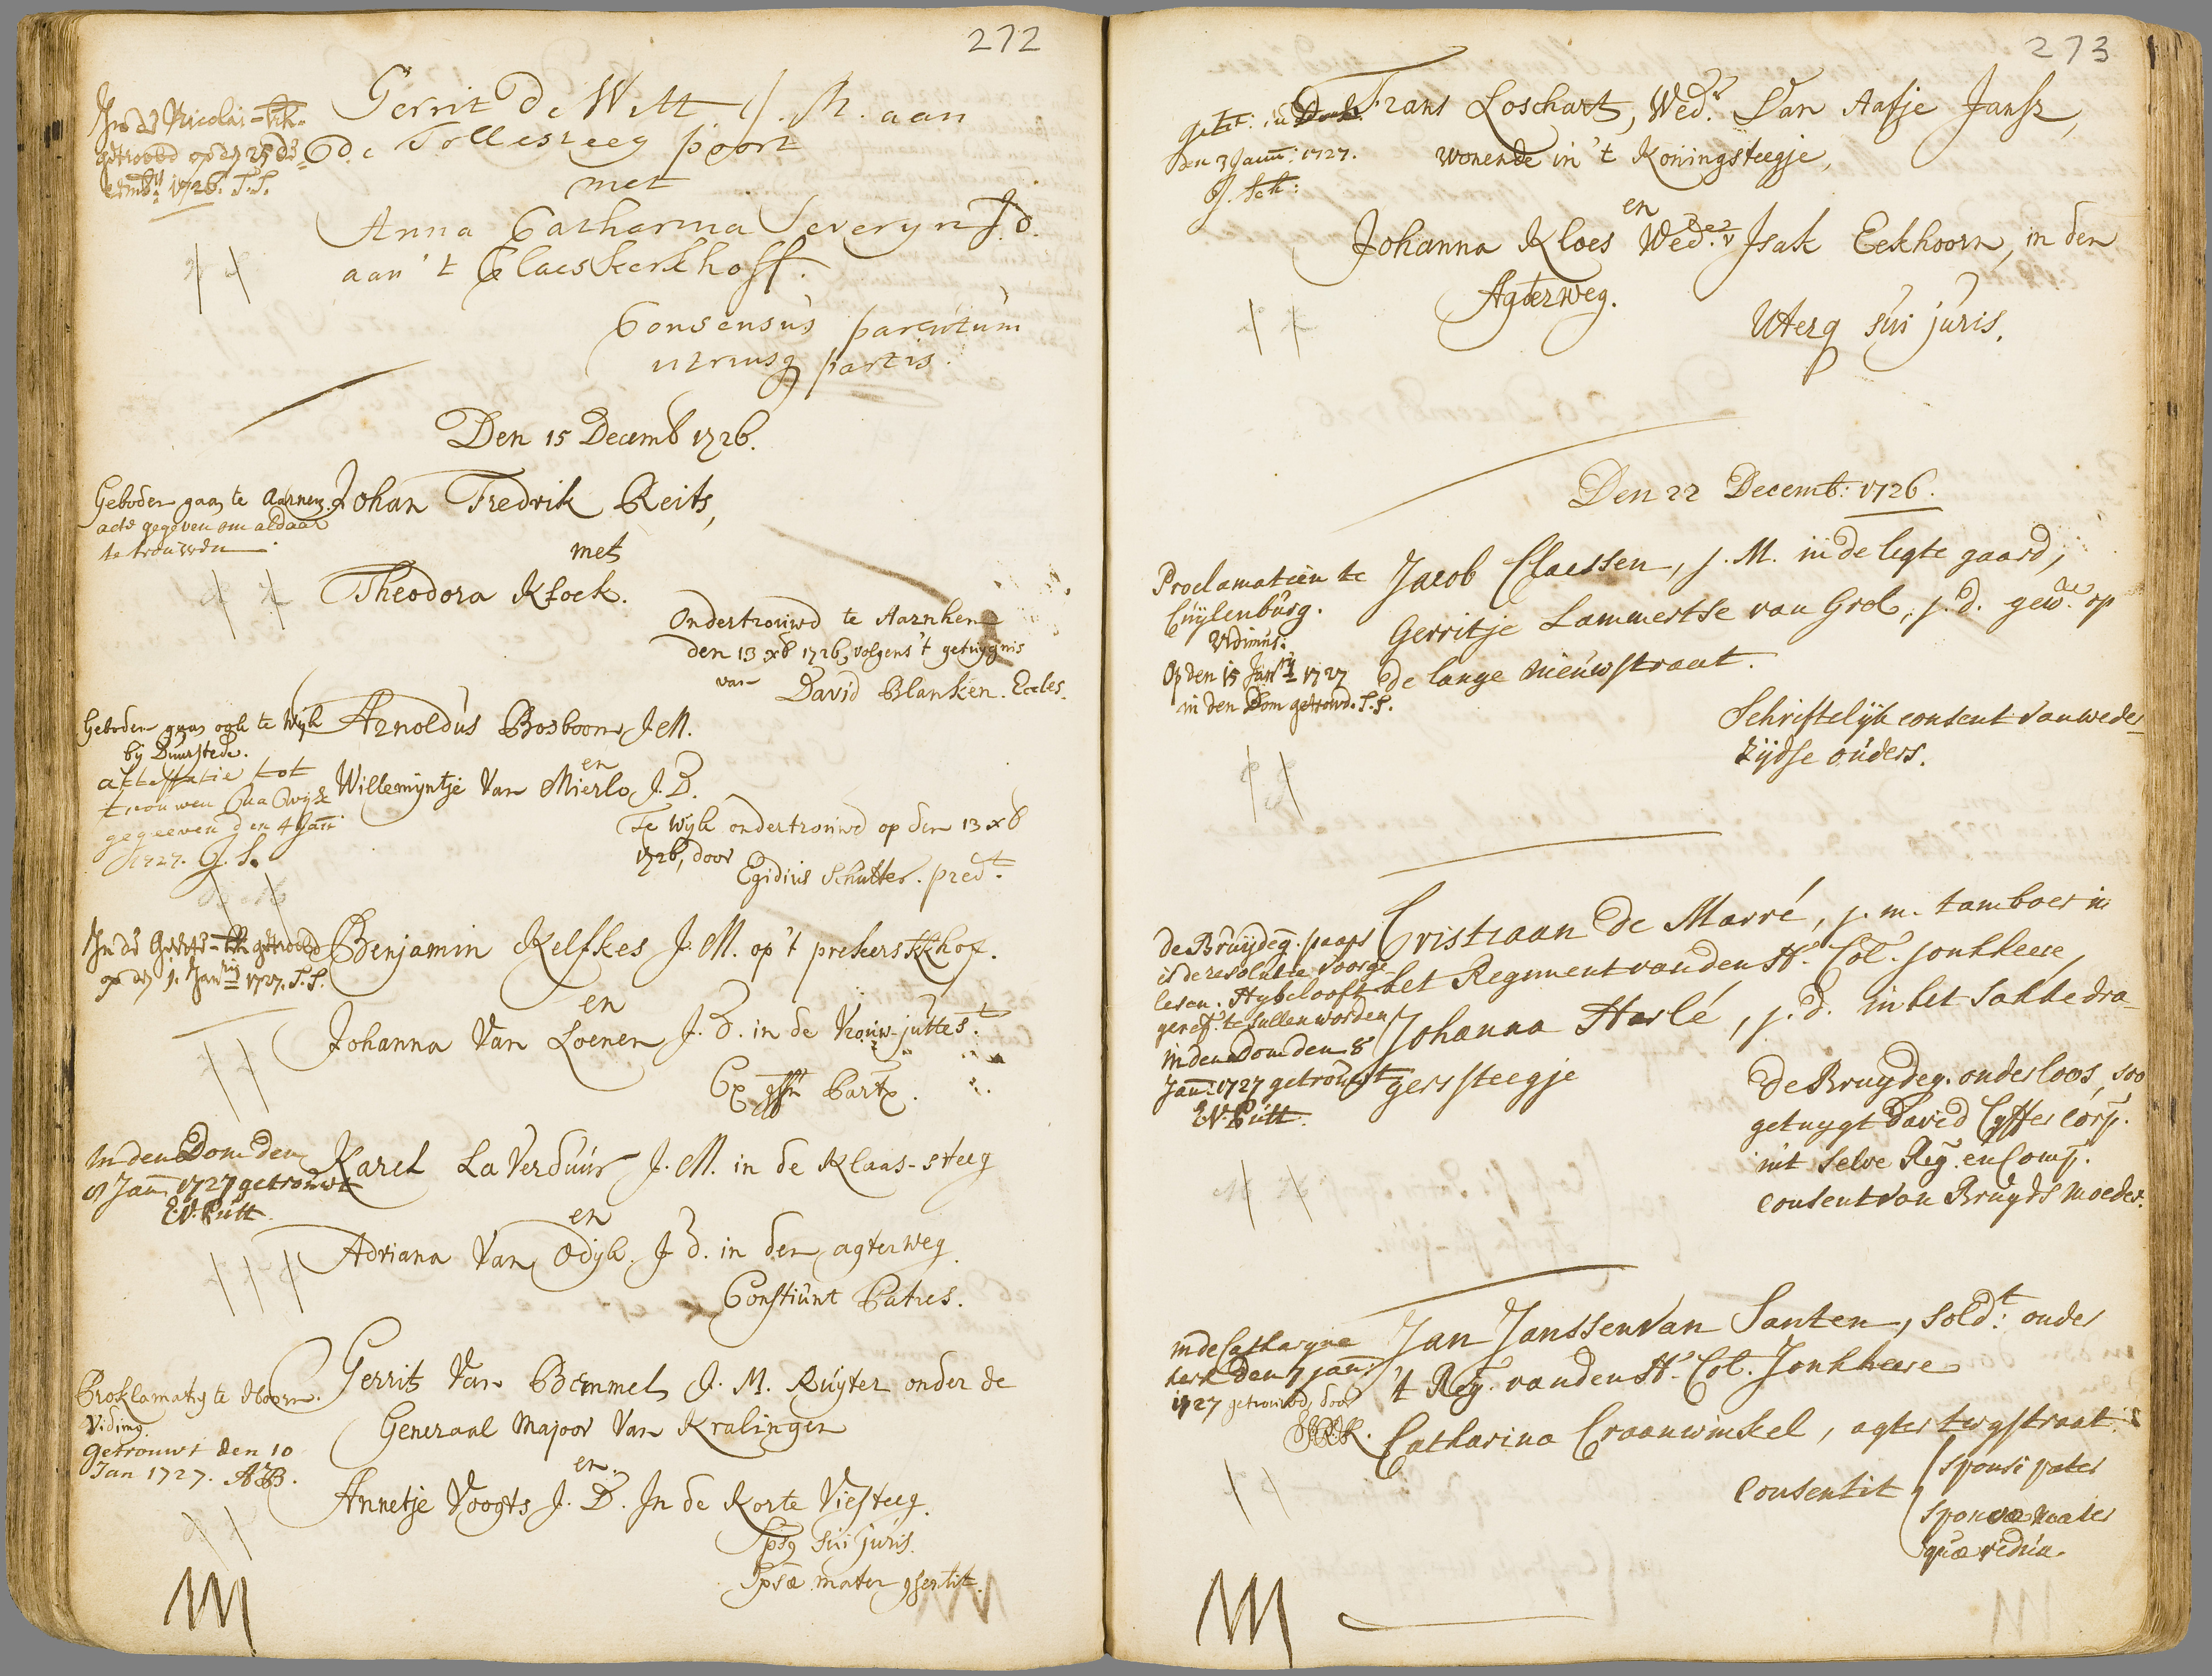 272
In de Nicolai-kk.
getrouwd op dn 25 de
cemb. 1726. S.S.
Gerrit De Witt J. M. aan
de Tollesteeg poort
met
Anna Catharina Severyn J.d.
aan 't Claeskerkhoff.
Consensus parentum
utriusq partis.
Den 15 Decemb 1726.
Geboden gaan te Aarnem
acte gegeven om aldaar
te trouwen
Johan Fredrik Reits,
met
Theodora Kloek.
Ondertrouwd te Aarnhem
den 13 xb 1726, volgens 't getuygnis
van David Blanken. Eccles.
Geboden gaan ook te Wyk
bij Duurstede.
attestatie tot
trouwen na Wijk
gegeeven den 4 Jan
1727. G. S.
Arnoldus Bosboom J.M.
en
Willemyntje Van Mierlo, J. D.
Te Wyk ondertrouwd op den 13 xb
1726, door
Egidius Schutter. pred.t
In de Geerte-kk getrouwd
op dn 1. Jan 1727. S.S.
Benjamin Kelfkes J. M. op 't prekerskkhof.
en
Johanna Van Loenen J. D. in de Vrouw-juttest.
Ex Part.
In den Dom den
8 Jan 1727 getrouwt
E.V. Putt.
Karel La Verduur J. M. in de Klaas-steeg
en
Adriana Van Odyk. J d. in den agterweg.
Constiunt Patres.
Proklamatie te Hoorn.
Vidimus
Getrouwt den 10
Jan 1727. AVB.
Gerrit Van Bemmel J. M. Ruyter onder de
Generaal Majoor Van Kralingen
en
Annetje Voogts J. D. In de Korte Viesteeg.
Ipse sui juris.
Ipsæ mater consentit.
273
getr. in Dom
den 3 Jann: 1727.
J. Sch:
Frans Loschart, Wed.r Van Aafje Jansz,
wonende in 't Koningsteegje,
en
Johanna Kloes Wed.e v Isak Eekhoorn, in den
Agterweg.
Uterq sui juris.
Den 22 Decemb: 1726.
Proclamatien te
Cuylenburg.
Vidimus.
Op den 15 Jan 1727
in den Dom getrouwd. S.S.
Jacob Claessen, j. M. in de ligte gaard,
Gerritje Lammertse van Grol, j. d. gew. op
de lange nieuwstraat.
Schriftelijk consent van weder
zijdse ouders.
de Bruydeg. paaps
is de resolutie voorge-
lesen. Hy belooft
geref. te sullen worden
in den Dom den 8
Jan: 1727 getrouwt
E.V. Putt.
Cristiaan de Marré, j. m. tamboer in
het Regiment van den Hr. Col. Jonkheere,
Johanna Harlé, j. d. in het Sakkedra-
gerssteegje
de Bruydeg. ouderloos, soo
getuygt David Cyffer Corp.
in't selve Reg. en Comp.
consent van Bruyds moeder.
in de Catharyne
kerk den 7 jan.
1727 getrouwd, door
Jan Janssen Van Santen, sold.t onder
't Reg. van den Hr. Col. Jonkheere
Catharina Craanwinkel, agter twystraat.
Consentit
sponsi pater
sponsæ mater
quæ vidua.